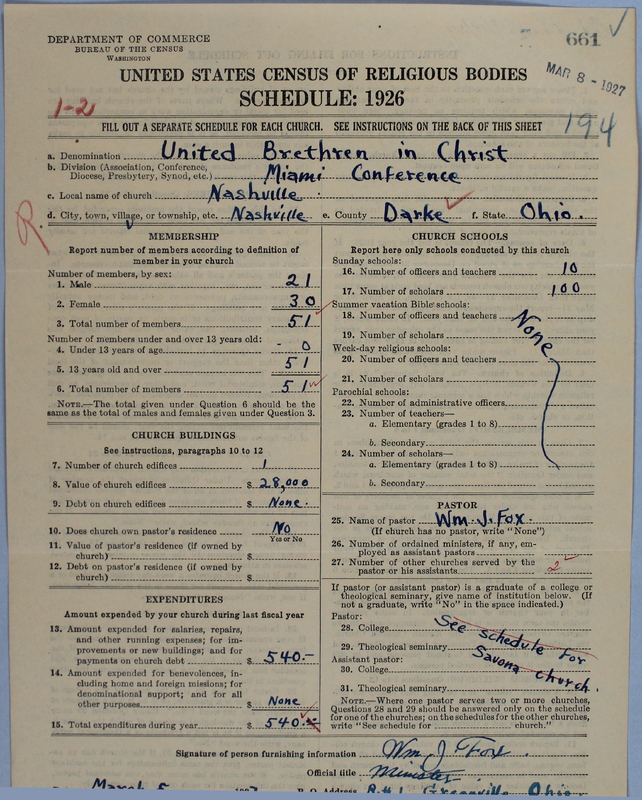 DEPARTMENT OF COMMERCE
BUREAU OF THE CENSUS
WASHINGTON
661
MAR 8 - 1927
UNITED STATES CENSUS OF RELIGIOUS BODIES
SCHEDULE: 1926
1-2
194
FILL OUT A SEPARATE SCHEDULE FOR EACH CHURCH. SEE INSTRUCTIONS ON THE BACK OF THIS SHEET
a. Denomination United Brethren in Christ
b. Division (Association, Conference, Diocese, Presbytery, Synod, etc.) Miami Conference
c. Local name of church Nashville
d. City, town, village, or township, etc. Nashville e. County Darke f. State Ohio.
R.
MEMBERSHIP
Report number of members according to definition of
member in your church
Number of members, by sex:
1. Male 21
2. Female 30
3. Total number of members 51
Number of members under and over 13 years old:
4. Under 13 years of age - 0
5. 13 years old and over 51
6. Total number of members 51
NOTE.—The total given under Question 6 should be
same as the total of males and females given under Question 3.
CHURCH BUILDINGS
See instructions, paragraphs 10 to 12
7. Number of church edifices 1
8. Value of church edifices $ 28,000
9. Debt on church edifices $ None.
10. Does church own pastor's residence No
Yes or No
11. Value of pastor's residence (if owned by
church) $
12. Debt on pastor's residence (if owned by
church) $
EXPENDITURES
Amount expended by your church during last fiscal year
13. Amount expended for salaries, repairs,
and other running expenses; for im-
provements or new buildings; and for
payments on church debt $ 540.-
14. Amount expended for benevolences, in-
cluding home and foreign missions; for
denominational support; and for all
other purposes $ None
15. Total expenditures during year $ 540.-
CHURCH SCHOOLS
Report here only schools conducted by this church
Sunday schools:
16. Number of officers and teachers 10
17. Number of scholars 100
Summer vacation Bible schools:
18. Number of officers and teachers None
19. Number of scholars
Week-day religious schools:
20. Number of officers and teachers
21. Number of scholars
Parochial schools:
22. Number of administrative officers
23. Number of teachers—
a. Elementary (grades 1 to 8)
b. Secondary
24. Number of scholars—
a. Elementary (grades 1 to 8)
b. Secondary
PASTOR
25. Name of pastor Wm. J. Fox.
(If church has no pastor, write "None")
26. Number of ordained ministers, if any, em-
ployed as assistant pastors
27. Number of other churches served by the
pastor or his assistants 2
If pastor (or assistant pastor) is a graduate of a college or
theological seminary, give name of institution below. (If
not a graduate, write "No" in the space indicated.)
Pastor:
28. College See schedule for
29. Theological seminary Savona Church.
Assistant pastor:
30. College
31. Theological seminary
NOTE.—Where one pastor serves two or more churches,
Questions 28 and 29 should be answered only on the schedule
for one of the churches; on the schedules for the other churches,
write "See schedule for church."
Signature of person furnishing information Wm J Fox
Official title Minister
March 5 P. O. Address R#1 Greenville Ohio